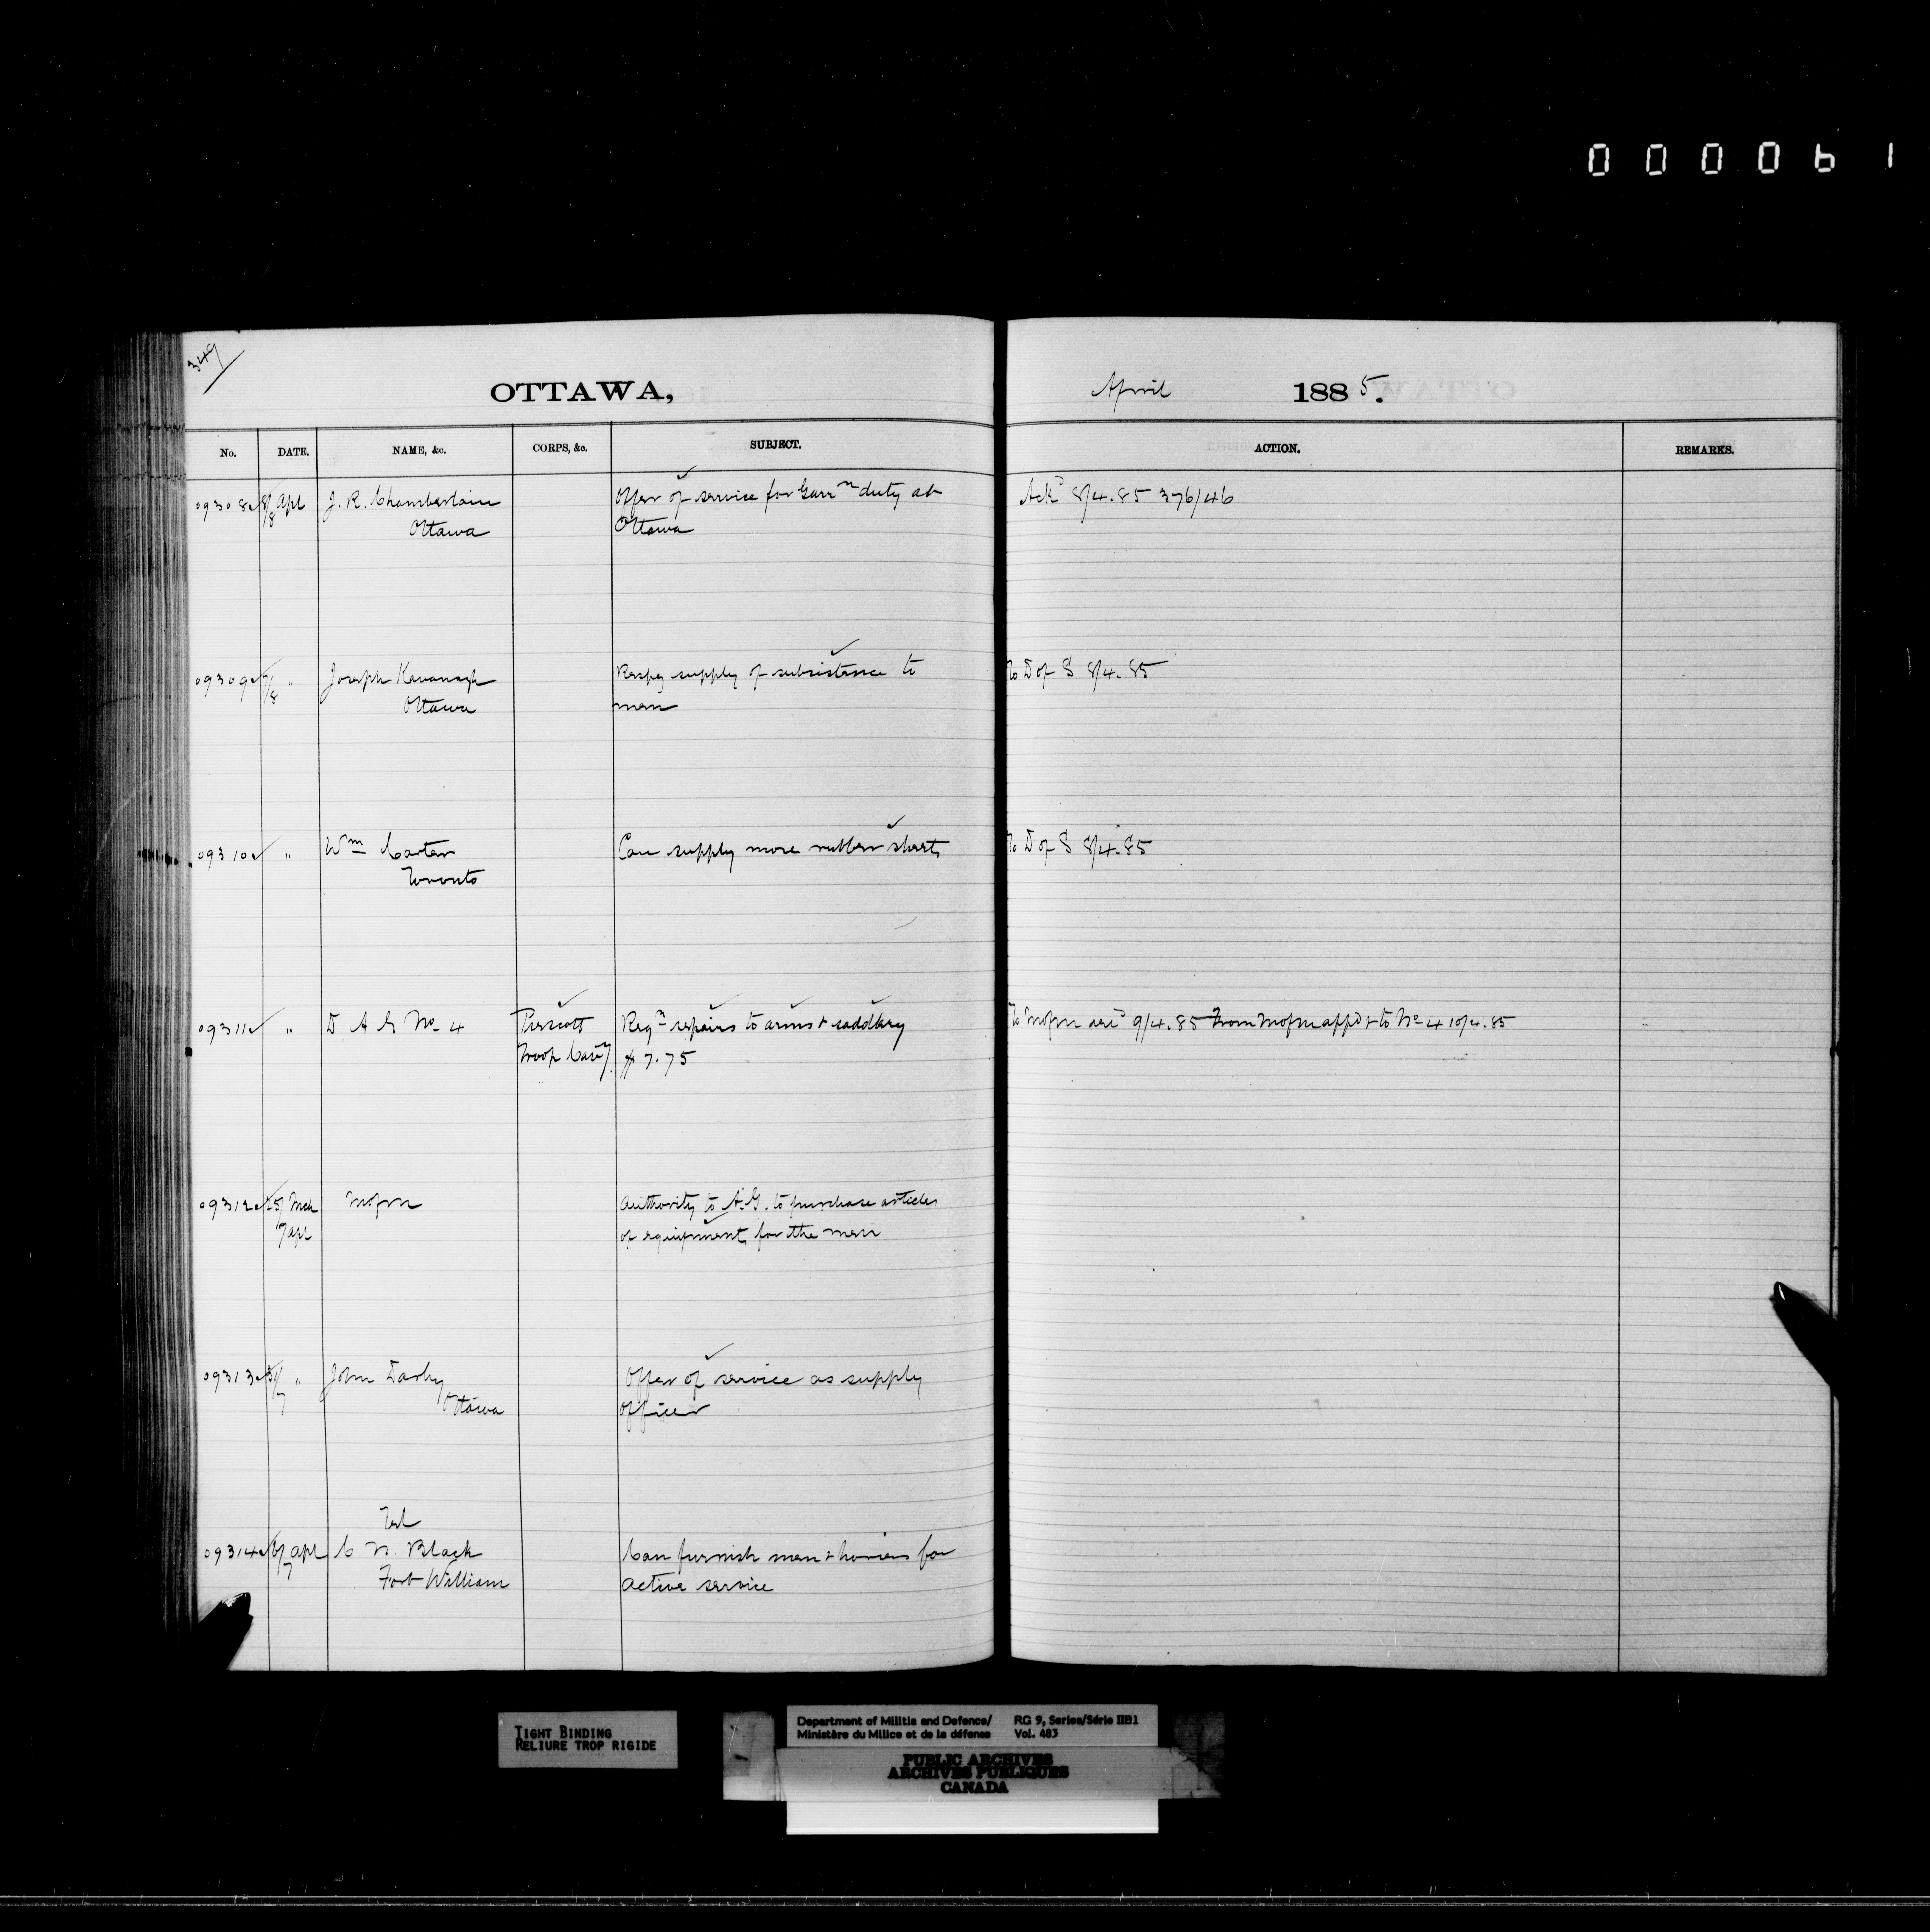 000061
349
OTTAWA, April 1885.
No. DATE. NAME, &c. CORPS, &c. SUBJECT. ACTION. REMARKS.
09308 8/8 Apl J. R. Chamberlain Offer of service for Garrn duty at Ackd 8/4.85 376/46
Ottawa Ottawa
09309 7/8 " Joseph Kavanagh Respg supply of subsistence to To D of S 8/4.85
Ottawa men
09310 " Wm Carter Can supply more rubber sheets To D of S 8/4.85
Toronto
09311 " D A G No 4 Prescott Reqn repairs to arms & saddlery To MofM 9/4.85 From MofM appd & to No 4 10/4.85
Troop Cavy $7.75
09312 25/ Mch MofM Authority to A.G. to purchase articles
7 apl of equipment for the men
09313 " John Darby Offer of service as supply
7 Ottawa officer
Tel
09314 6/7 apl C N. Black Can furnish men & horses for
Fort William active service
TIGHT BINDING
RELIURE TROP RIGIDE
Department of Militia and Defence/ RG 9, Series/Série IIB1
Ministère du Milice et de la défense Vol. 483
PUBLIC ARCHIVES
ARCHIVES PUBLIQUES
CANADA